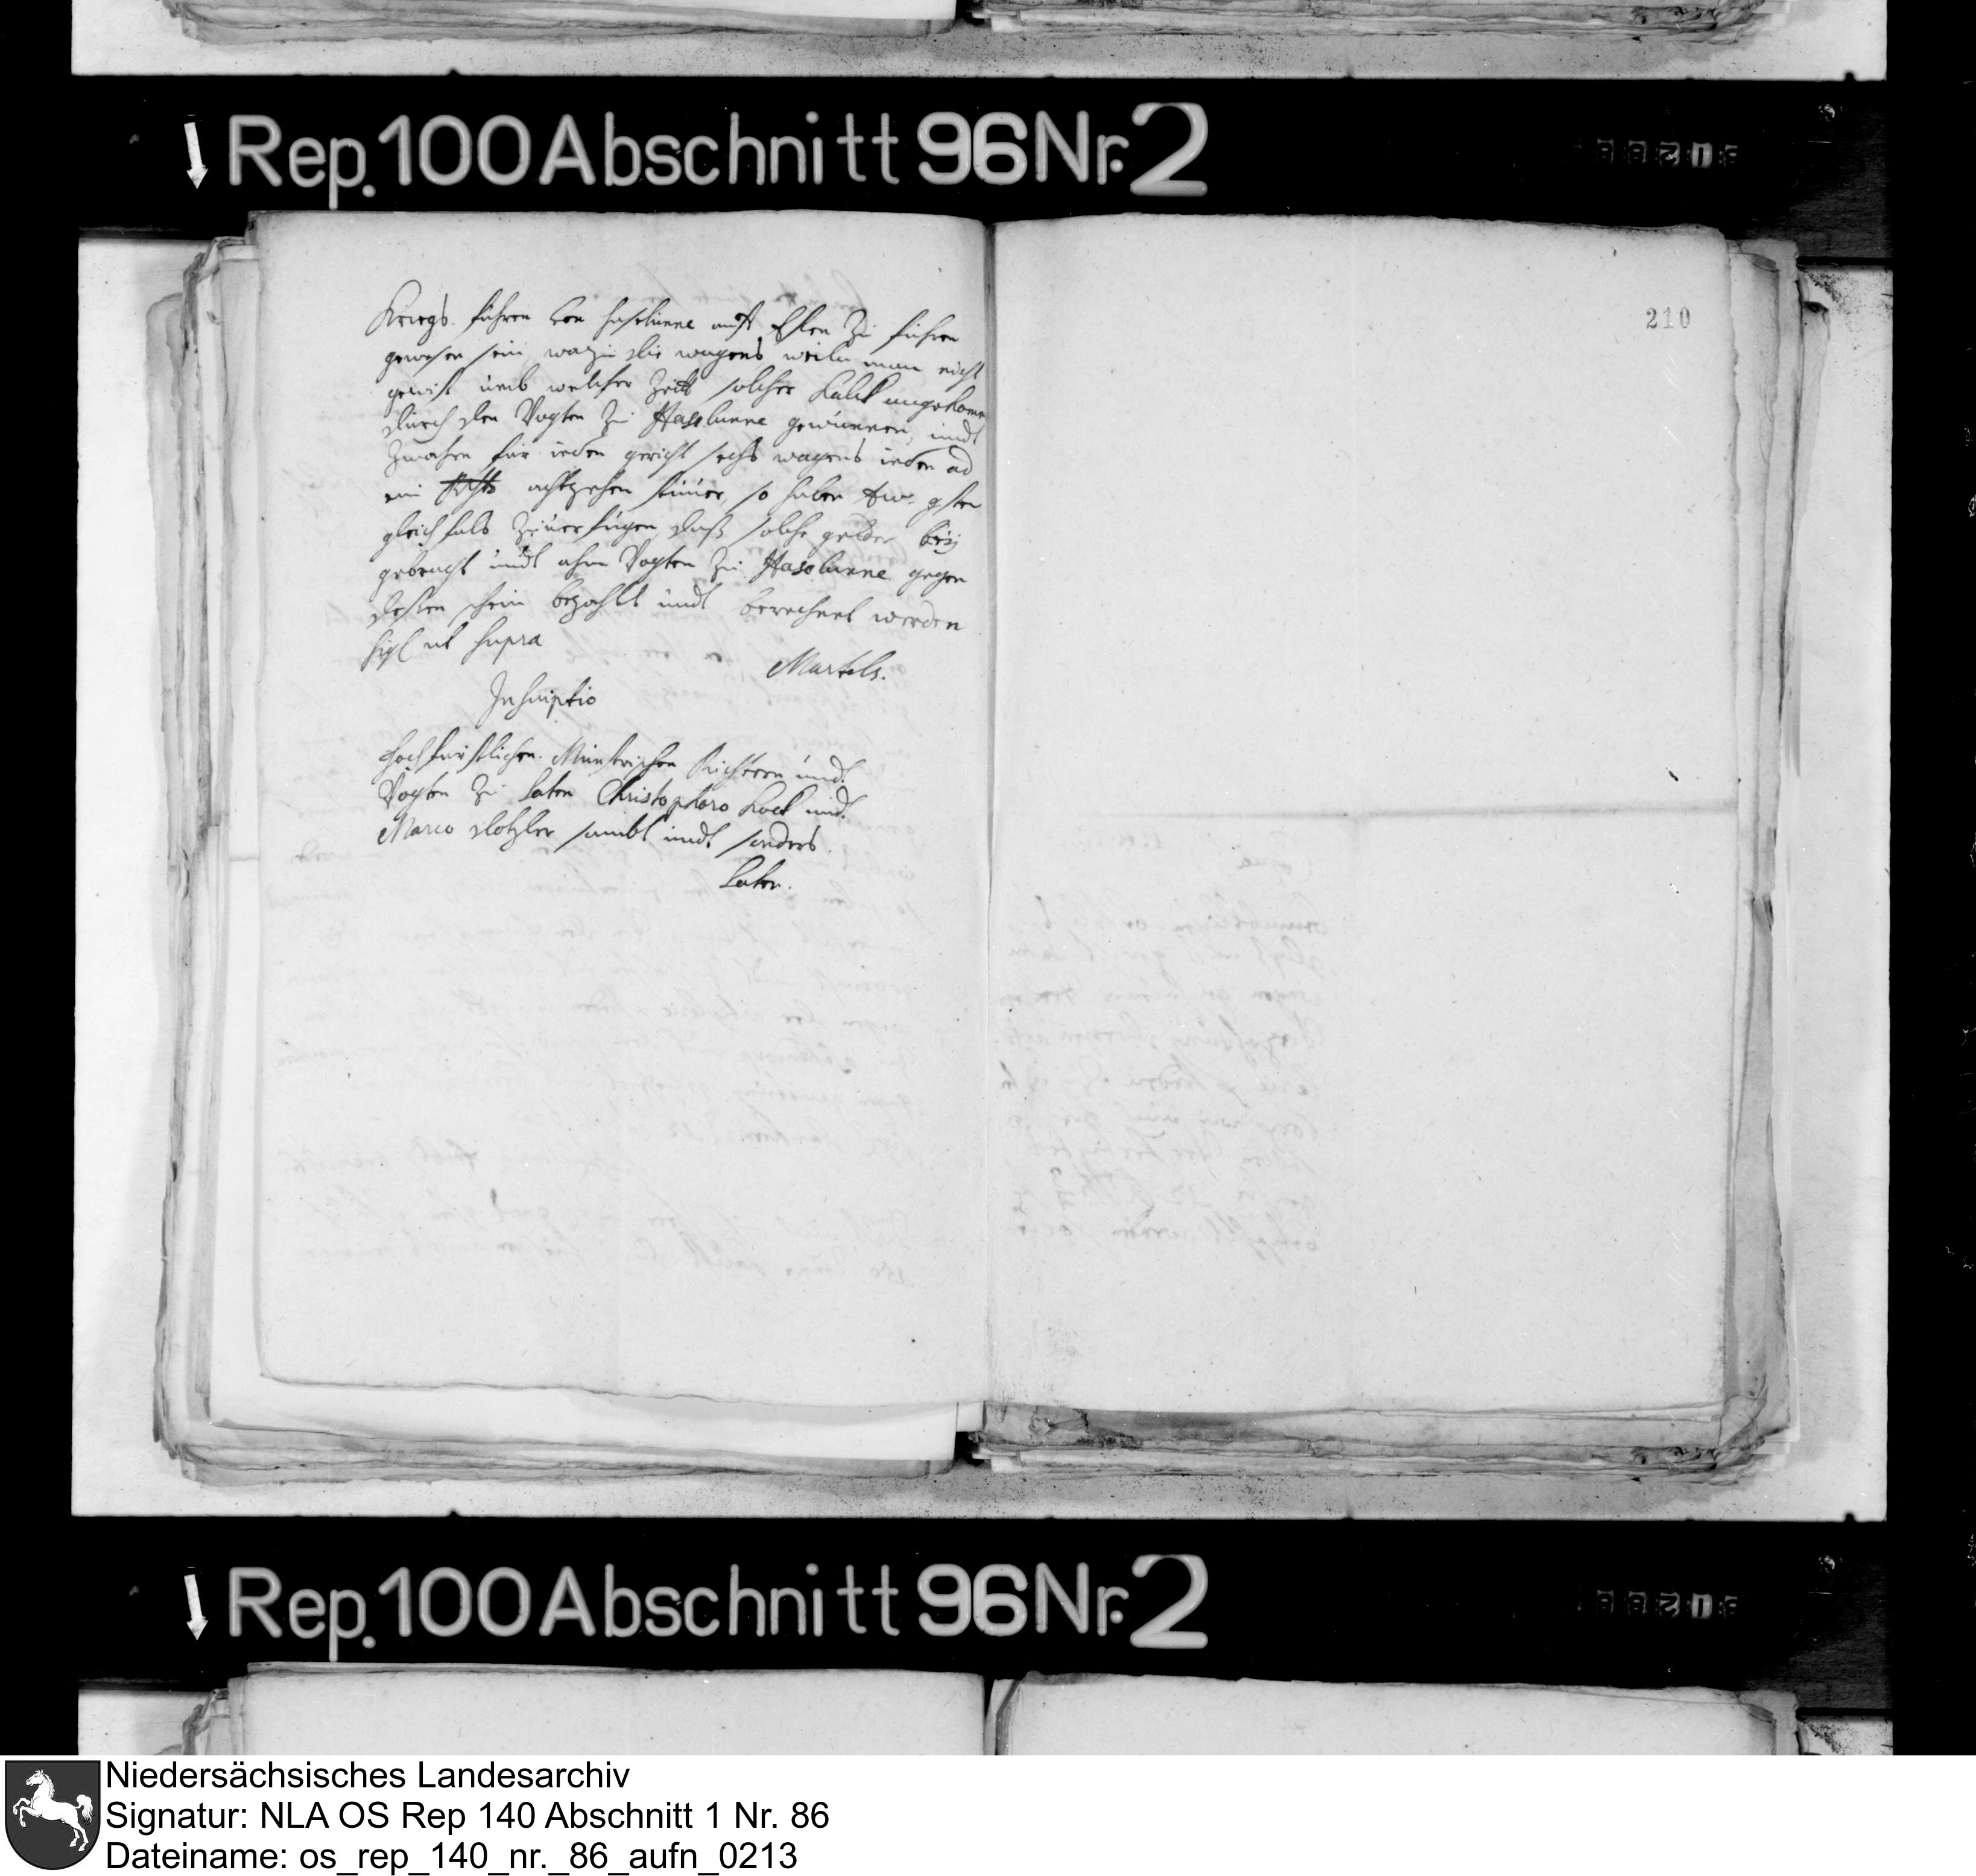 Rep. 100 Abschnitt 96 Nr. 2
210
Kriegs fuhren von haselünne auff Essen Zu führen
gewesen sein, wozu die wagens weiln man nicht
gewist umb welcher Zeitt solcher Kalck angekomen
durch den Vogten Zu Haselunne gewunnen, undt
Zwahren für ieden gericht sechs wagens ieden ad
ein achtzehen stüver, so haben Ew. gsten
gleichfals Zuverfügen, daß solche gelder beÿ
gebracht undt ahm Vogten Zu Haselunne gegen
deßen schein bezahlt undt berechnet werden
sigl ut supra
Martels.
Inscriptio
Hochfürstlichen Münstrischen Richtern und
Vogten Zu Laten Christophoro Kock und
Marco sambt undt sonders.
Laten.
Rep. 100 Abschnitt 96 Nr. 2
Niedersächsisches Landesarchiv
Signatur: NLA OS Rep 140 Abschnitt 1 Nr. 86
Dateiname: os_rep_140_nr._86_aufn_0213